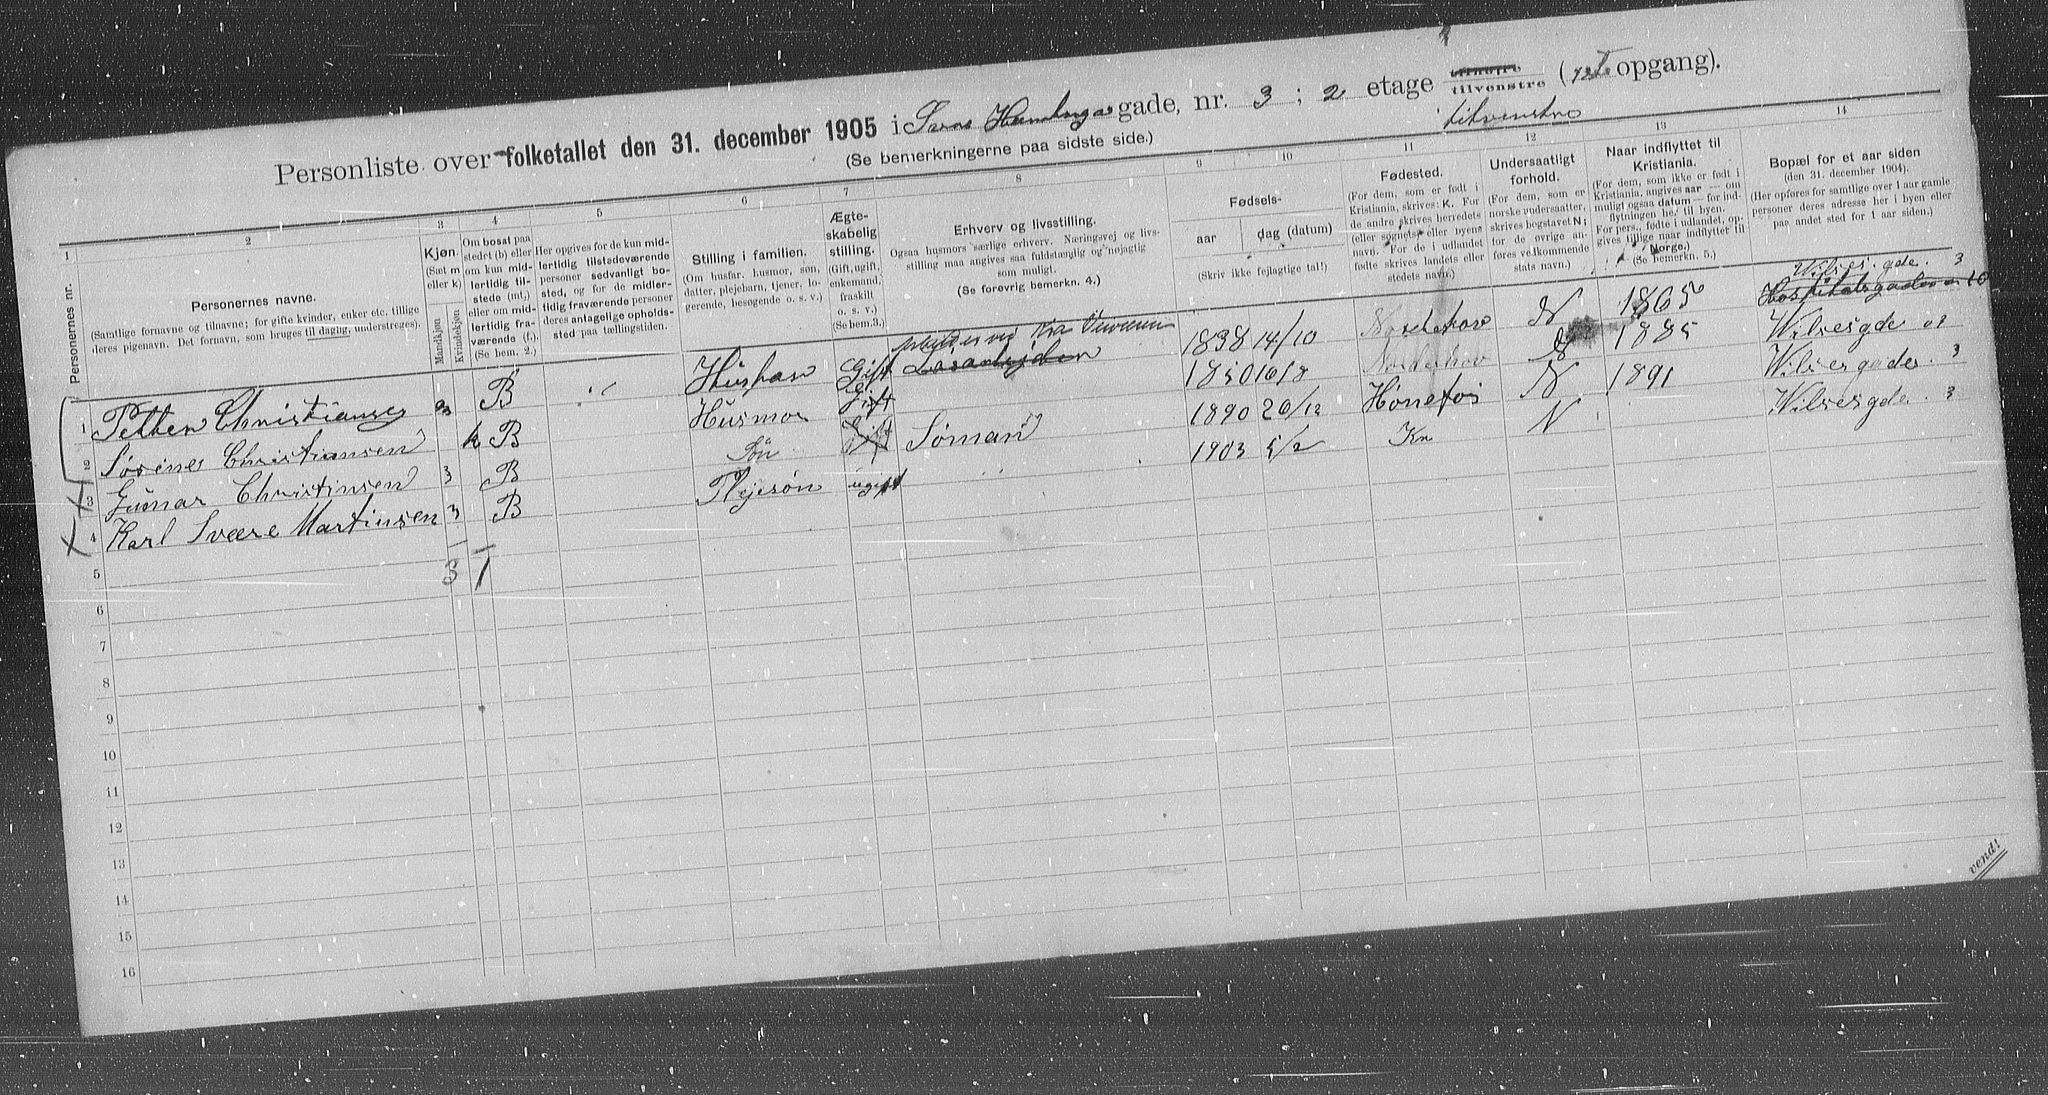 Personliste over folketallet den 31. december 1905 i gade, nr. 3 ; 2 etage tilvenstre ( opgang).
tilvenstre
(Se bemerkningerne paa sidste side.)
1
2
3
4
5
6
7
8
9
10
11
12
13
14
Personernes nr.
Personernes navne.
(Samtlige fornavne og tilnavne; for gifte kvinder, enker etc. tillige
deres pigenavn. Det fornavn, som bruges til daglig, understreges).
Kjøn.
(Sæt m
eller k)
Mandkjøn
Kvindekjøn
Om bosat paa
stedet (b) eller
om kun mid-
lertidig til-
stede (mt.)
eller om mid-
lertidig fra-
værende (f.).
(Se bem. 2.)
Her opgives for de kun mid-
lertidig tilstedeværende
personer sedvanligt bo-
sted, og for de midler-
tidig fraværende personer
deres antagelige opholds-
sted paa tællingstiden.
Stilling i familien.
(Om husfar, husmor, søn,
datter, plejebarn, tjener, lo-
gerende, besøgende o. s. v.)
Ægte-
skabelig
stilling.
(Gift, ugift,
enkemand,
fraskilt
o. s. v.)
(Se bem. 3.)
Erhverv og livsstilling.
Ogsaa husmors særlige erhverv. Næringsvej og livs-
stilling maa angives saa fuldstændig og nøjagtig
som muligt.
(Se forøvrig bemerkn. 4.)
Fødsels-
aar
dag (datum)
(Skriv ikke fejlagtige tal!)
Fødested.
(For dem, som er født i
Kristiania, skrives: K. For
de andre skrives herredets
(eller sognets) eller byens
navn. For de i udlandet
fødte skrives landets eller
stedets navn.)
Undersaatligt
forhold.
(For dem, som er
norske undersaatter,
skrives bogstavet N;
for de øvrige an-
føres vedkommende
stats navn.)
Naar indflyttet til
Kristiania.
(For dem, som ikke er født i
Kristiania, angives aar — om
muligt ogsaa datum — for ind-
flytningen her til byen.
For pers., fødte i udlandet, op-
gives tillige naar indflyttet til
Norge.)
(Se bemerkn. 5.)
Bopæl for et aar siden
(den 31. december 1904).
(Her opføres for samtlige over 1 aar gamle
personer deres adresse her i byen eller
paa andet sted for 1 aar siden.)
1 Petter Christiansen m B Husfar Gift 1838 14/10 Norderhov N 1865 Hospitalsgaden 10 Wilsesgde. 3
2 Sørine Christiansen k B Husmor Gift 1850 16/8 Norderhov N 1885 Wilsesgde
3 Gunnar Christinsen B Søn Sømand 1890 26/12 Hønefos N 1891 Wilsesgade. 3
4 Karl Svære Martinsen B Plejesøn ugift 1903 5/2 Kr N Wilsesgde. 3
5
3 1
6
7
8
9
10
11
12
13
14
15
16
vend!